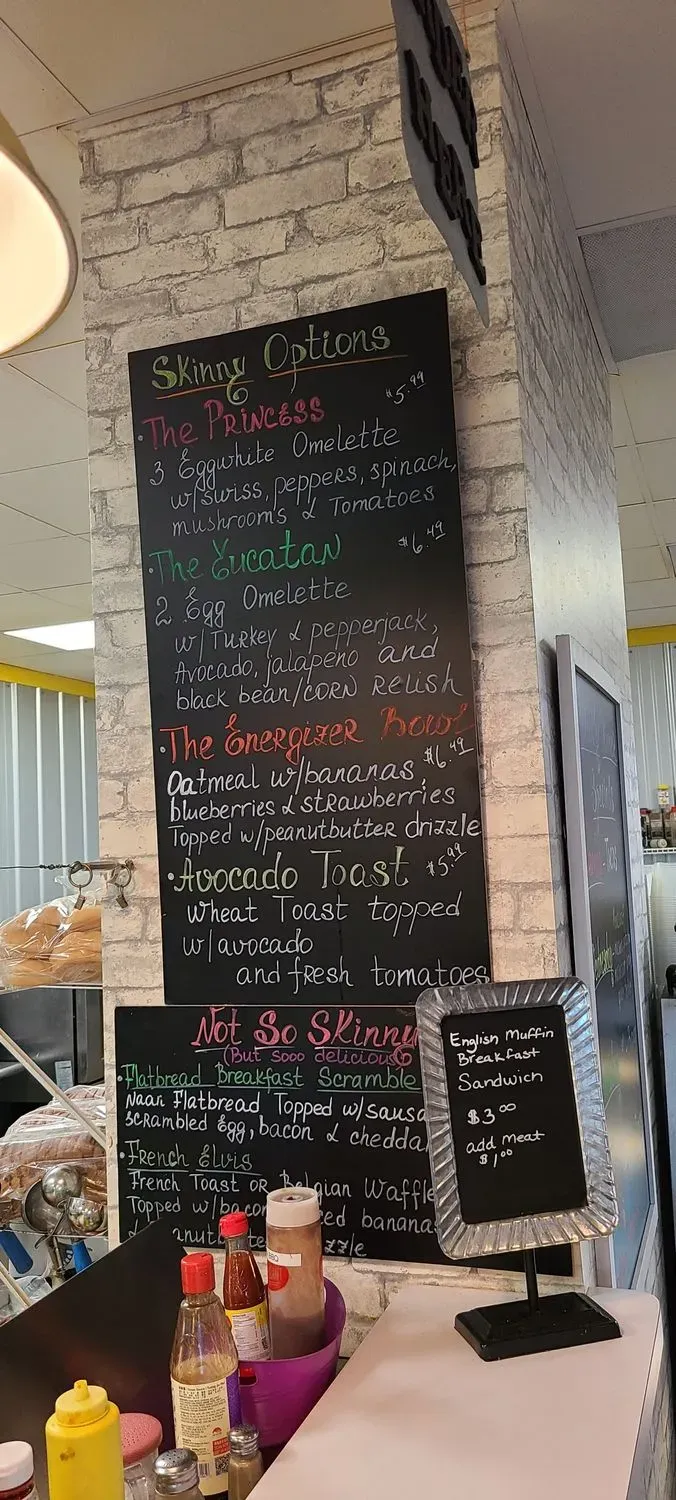 ORDER
HERE
Skinny Options
•The Princess $5.99
3 Eggwhite Omelette
w/swiss, peppers, spinach,
mushrooms & Tomatoes
•The Yucatan $6.49
2 Egg Omelette
w/Turkey & pepperjack,
Avocado, jalapeno and
black bean/corn Relish
•The Energizer Bowl
Oatmeal w/bananas, $6.49
blueberries & strawberries
Topped w/peanutbutter drizzle
•Avocado Toast $5.99
Wheat Toast topped
w/avocado
and fresh tomatoes
Not So Skinny
(But sooo delicious)
•Flatbread Breakfast Scramble
Naan Flatbread Topped w/sausa
scrambled Egg, bacon & chedda
•French Elvis
French Toast or Belgian Waffle
Topped w/bacon bananas
&
English Muffin
Breakfast
Sandwich
$3.00
add meat
$1.00